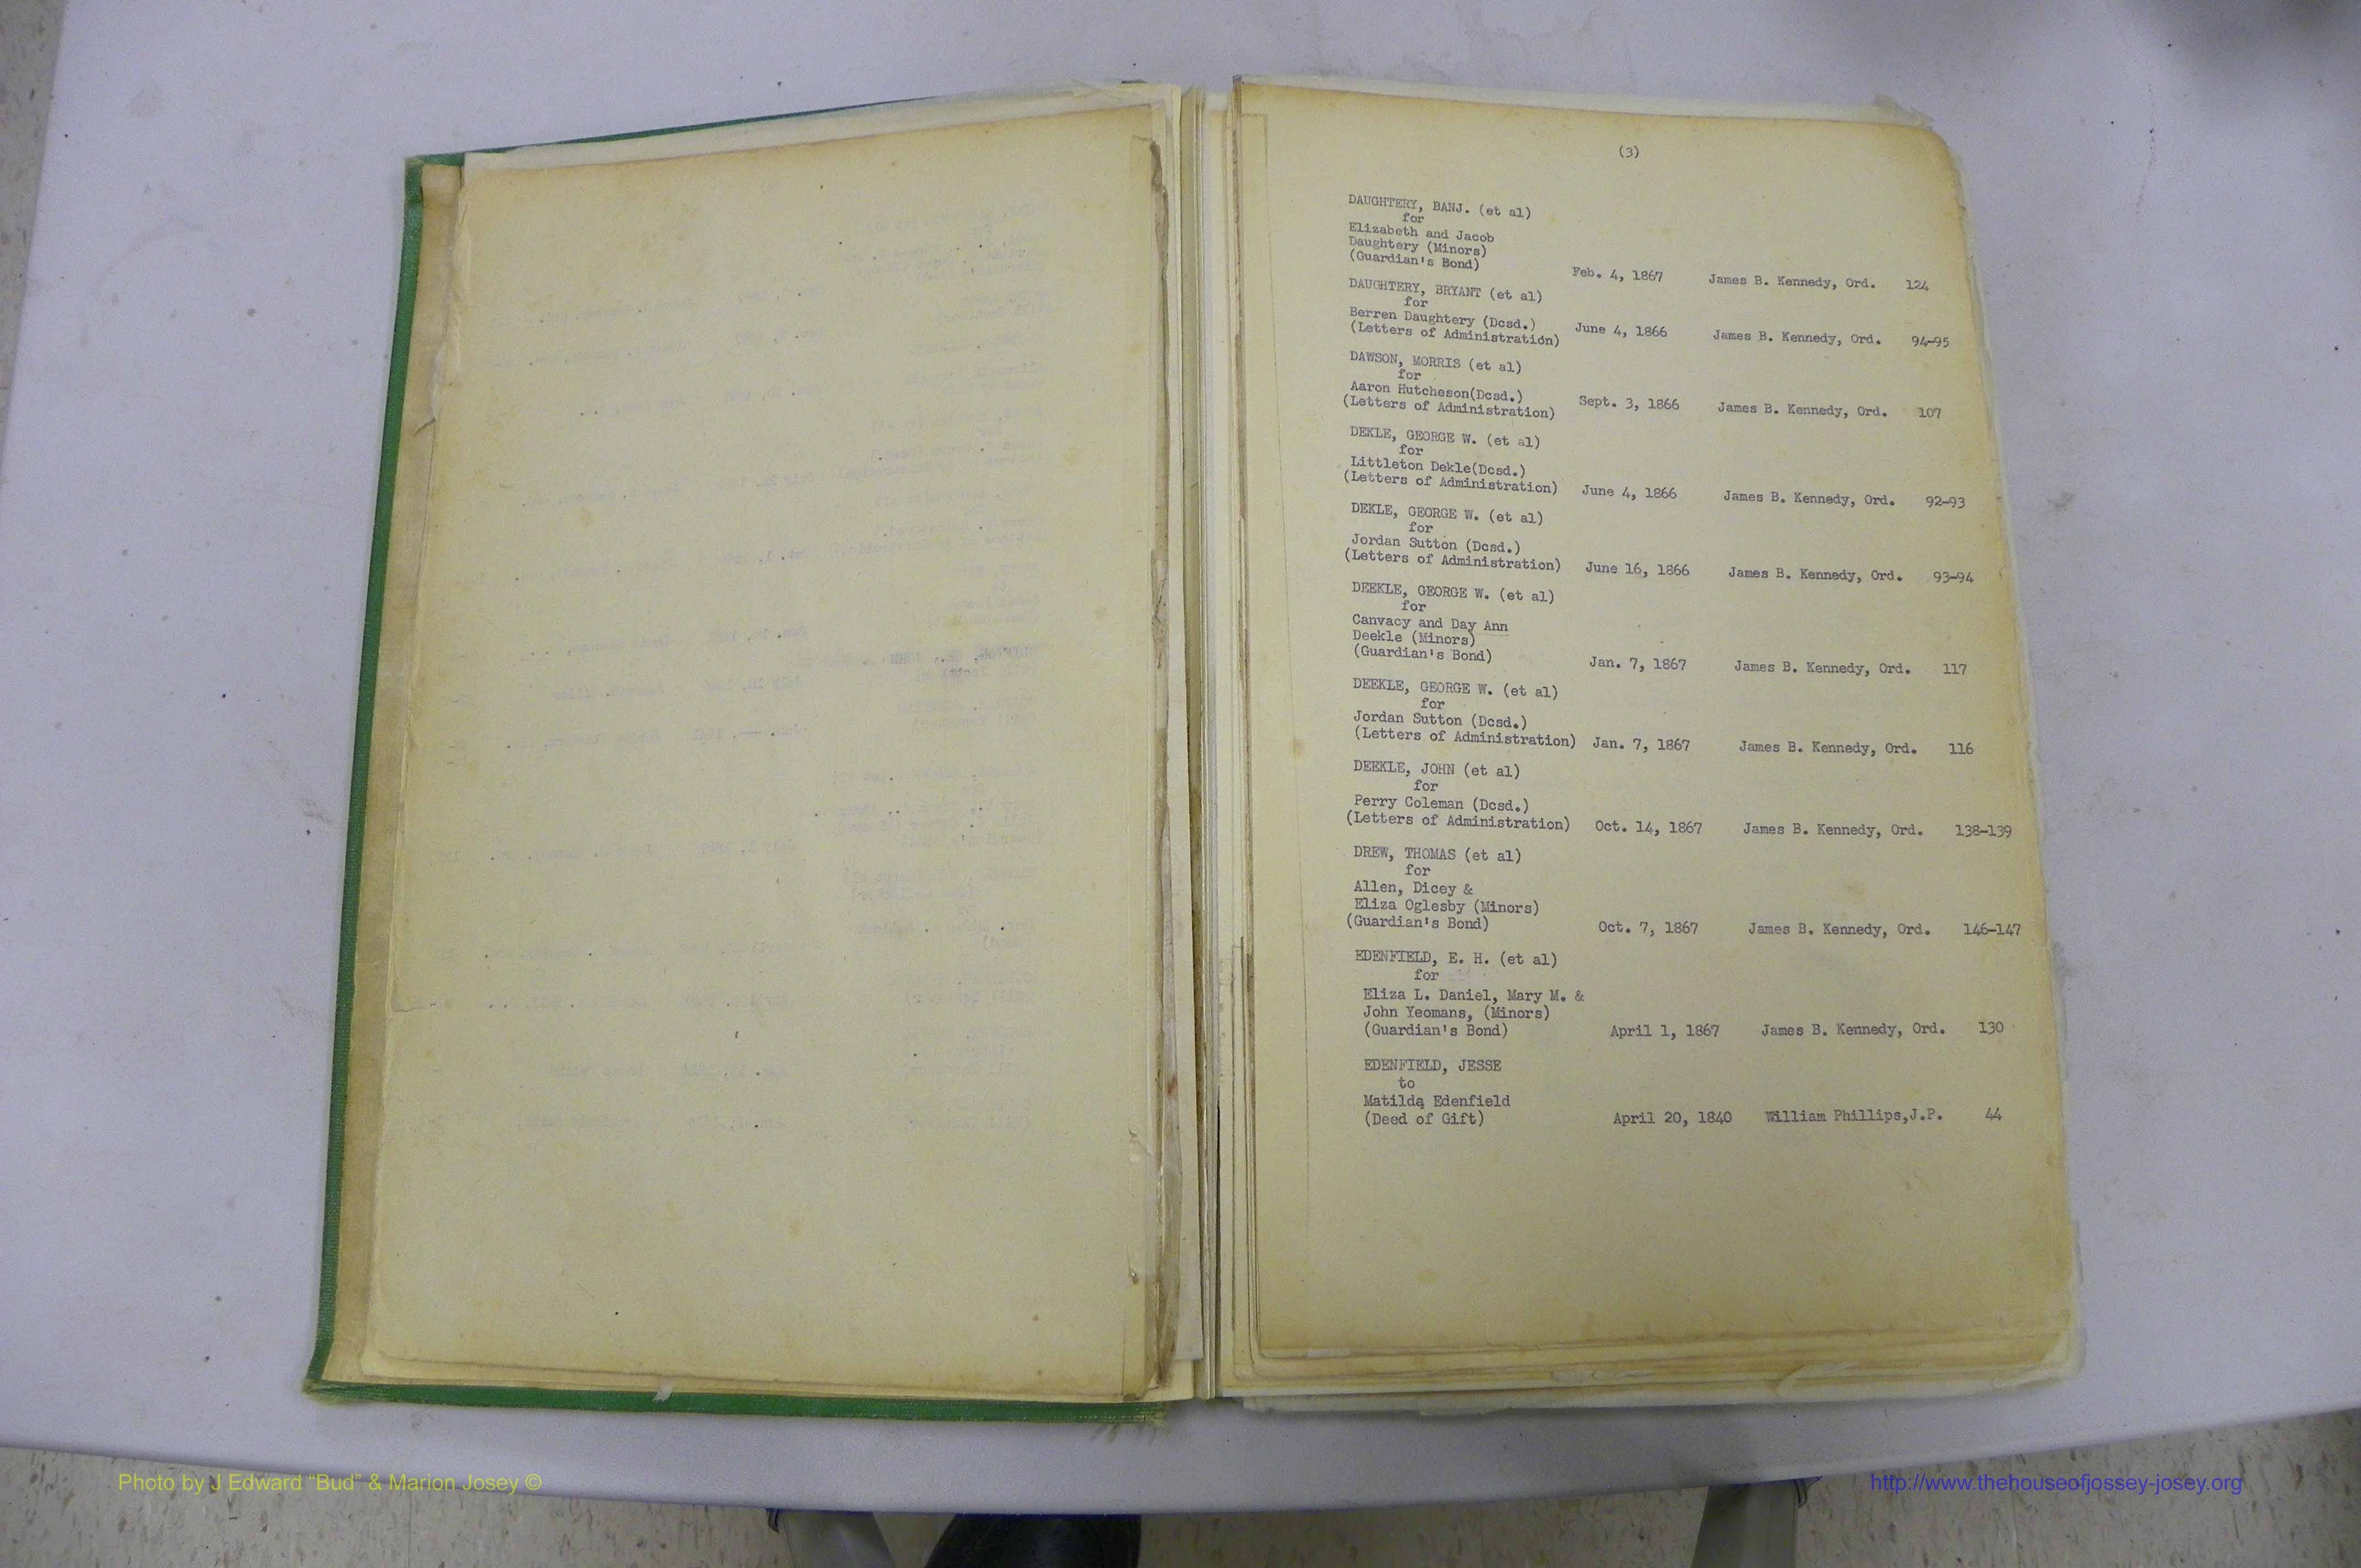 (3)
DAUGHTERY, BANJ. (et al)
for
Elizabeth and Jacob
Daughtery (Minors)
(Guardian's Bond) Feb. 4, 1867 James B. Kennedy, Ord. 124
DAUGHTERY, BRYANT (et al)
for
Berren Daughtery (Dcsd.)
(Letters of Administration) June 4, 1866 James B. Kennedy, Ord. 94-95
DAWSON, MORRIS (et al)
for
Aaron Hutcheson(Dcsd.)
(Letters of Administration) Sept. 3, 1866 James B. Kennedy, Ord. 107
DEKLE, GEORGE W. (et al)
for
Littleton Dekle(Dcsd.)
(Letters of Administration) June 4, 1866 James B. Kennedy, Ord. 92-93
DEKLE, GEORGE W. (et al)
for
Jordan Sutton (Dcsd.)
(Letters of Administration) June 16, 1866 James B. Kennedy, Ord. 93-94
DEEKLE, GEORGE W. (et al)
for
Canvacy and Day Ann
Deekle (Minors)
(Guardian's Bond) Jan. 7, 1867 James B. Kennedy, Ord. 117
DEEKLE, GEORGE W. (et al)
for
Jordan Sutton (Dcsd.)
(Letters of Administration) Jan. 7, 1867 James B. Kennedy, Ord. 116
DEEKLE, JOHN (et al)
for
Perry Coleman (Dcsd.)
(Letters of Administration) Oct. 14, 1867 James B. Kennedy, Ord. 138-139
DREW, THOMAS (et al)
for
Allen, Dicey &
Eliza Oglesby (Minors)
(Guardian's Bond) Oct. 7, 1867 James B. Kennedy, Ord. 146-147
EDENFIELD, E. H. (et al)
for
Eliza L. Daniel, Mary M. &
John Yeomans, (Minors)
(Guardian's Bond) April 1, 1867 James B. Kennedy, Ord. 130
EDENFIELD, JESSE
to
Matilda Edenfield
(Deed of Gift) April 20, 1840 William Phillips,J.P. 44
Photo by J Edward “Bud” & Marion Josey ©
http://www.thehouseofjossey-josey.org